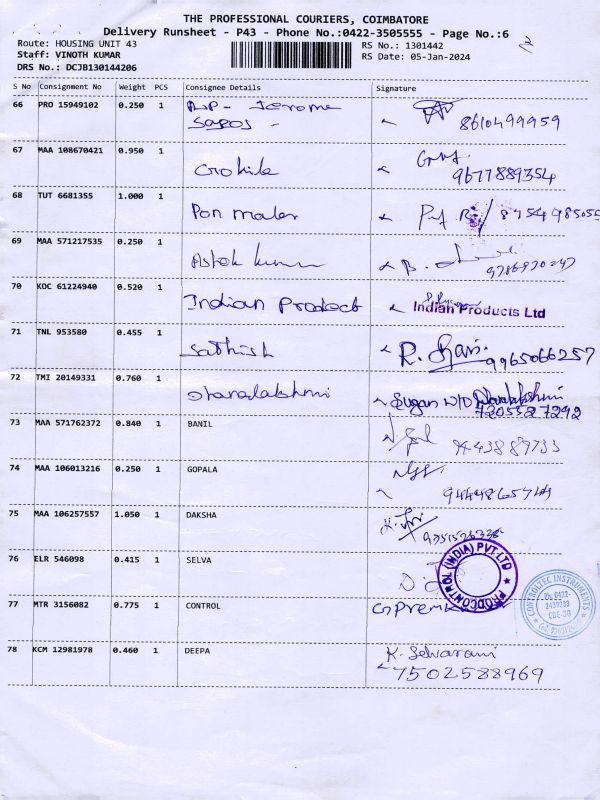 THE PROFESSIONAL COURIERS, COIMBATORE
Delivery Runsheet - P43 - Phone No.:0422-3505555 - Page No.:6
Route: HOUSING UNIT 43
RS No.: 1301442
Staff: VINOTH KUMAR
RS Date: 05-Jan-2024
DRS No.: DCJB130144206
S No Consignment No Weight PCS Consignee Details Signature
66 PRO 15949102 0.250 1 Jerome
8610499959
67 MAA 108670421 0.950 1 Gokila
9677889354
68 TUT 6681355 1.000 1 Pon malar
69 MAA 571217535 0.250 1 Ashok kumar
70 KOC 61224940 0.520 1 Indian Product Indian Products Ltd
71 TNL 953580 0.455 1 Sathish R. 9965066257
72 TMI 20149331 0.760 1 Dhanalakshmi Sugan W/O Dhanalakshmi
7205527292
73 MAA 571762372 0.840 1 BANIL
9443889733
74 MAA 106013216 0.250 1 GOPALA
75 MAA 106257557 1.050 1 DAKSHA
76 ELR 546098 0.415 1 SELVA
PRODCONTROL (INDIA) PVT.LTD
CONTROLTEC INSTRUMENTS
77 MTR 3156082 0.775 1 CONTROL
78 KCM 12981978 0.460 1 DEEPA K. Selvarani
7502588969